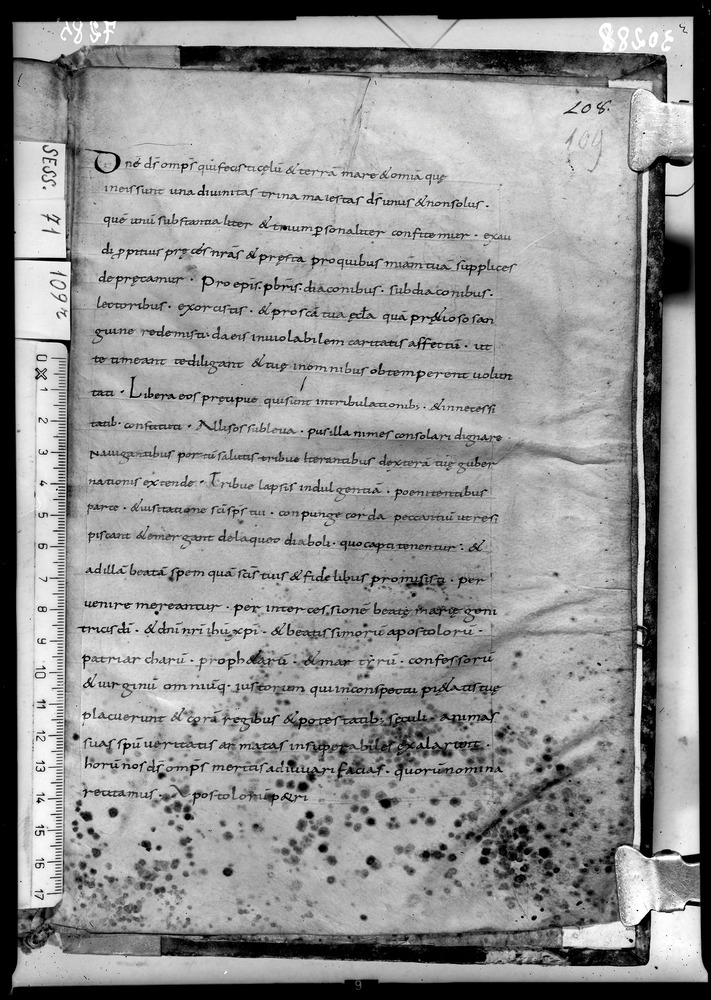 7285
30288
108.
109
SESS. 71
109 r
Dne ds omps qui fecisti celu & terra mare & omia que
in eis sunt una divinitas trina maiestas ds unus & non solus ·
que unu substantialiter & trium personaliter confitemur · exau
di ppitius preces nras & presta pro quibus miam tua supplices
deprecamur · Pro epis · pbris · diaconibus · subdiaconibus ·
lectoribus · exorcistis · & pro sca tua eccla qua pr&ioso san
guine redemisti · da eis inviolabilem caritatis affectu · ut
te timeant te diligant & tue in omnibus obtemperent volun
tati · Libera eos precipue qui sunt in tribulationib; · & in necessi
tatib · constituti · Allisos subleva · pusillanimes consolari dignare
navigantibus portu salutis tribue Iterantibus dextera tue guber
nationis extende · Tribue lapsis indulgentia · poenitentibus
parce · & visitatione sci sps tui · conpunge corda peccantiu ut resi
piscant & emergant de laqueo diaboli · quo capti tenentur · &
ad illa beata spem qua scis tuis & fidelibus promisisti · per
venire mereantur · per intercessione beate marie geni
tricis di · & dni nri ihu xpi · & beatissimoru apostoloru ·
patriarcharu · proph&aru · & martyru · confessoru
& virginu omniuq · iustorum qui in conspectu pi&atis tue
placuerunt & cora regibus & potestatib; seculi · animas
suas spu veritatis armatas insuperabiles exalarunt ·
horu nos ds omps meritis adiuvari facias · quoru nomina
recitamus · Apostoloru p&ri
0 1 2 3 4 5 6 7 8 9 10 11 12 13 14 15 16 17
9